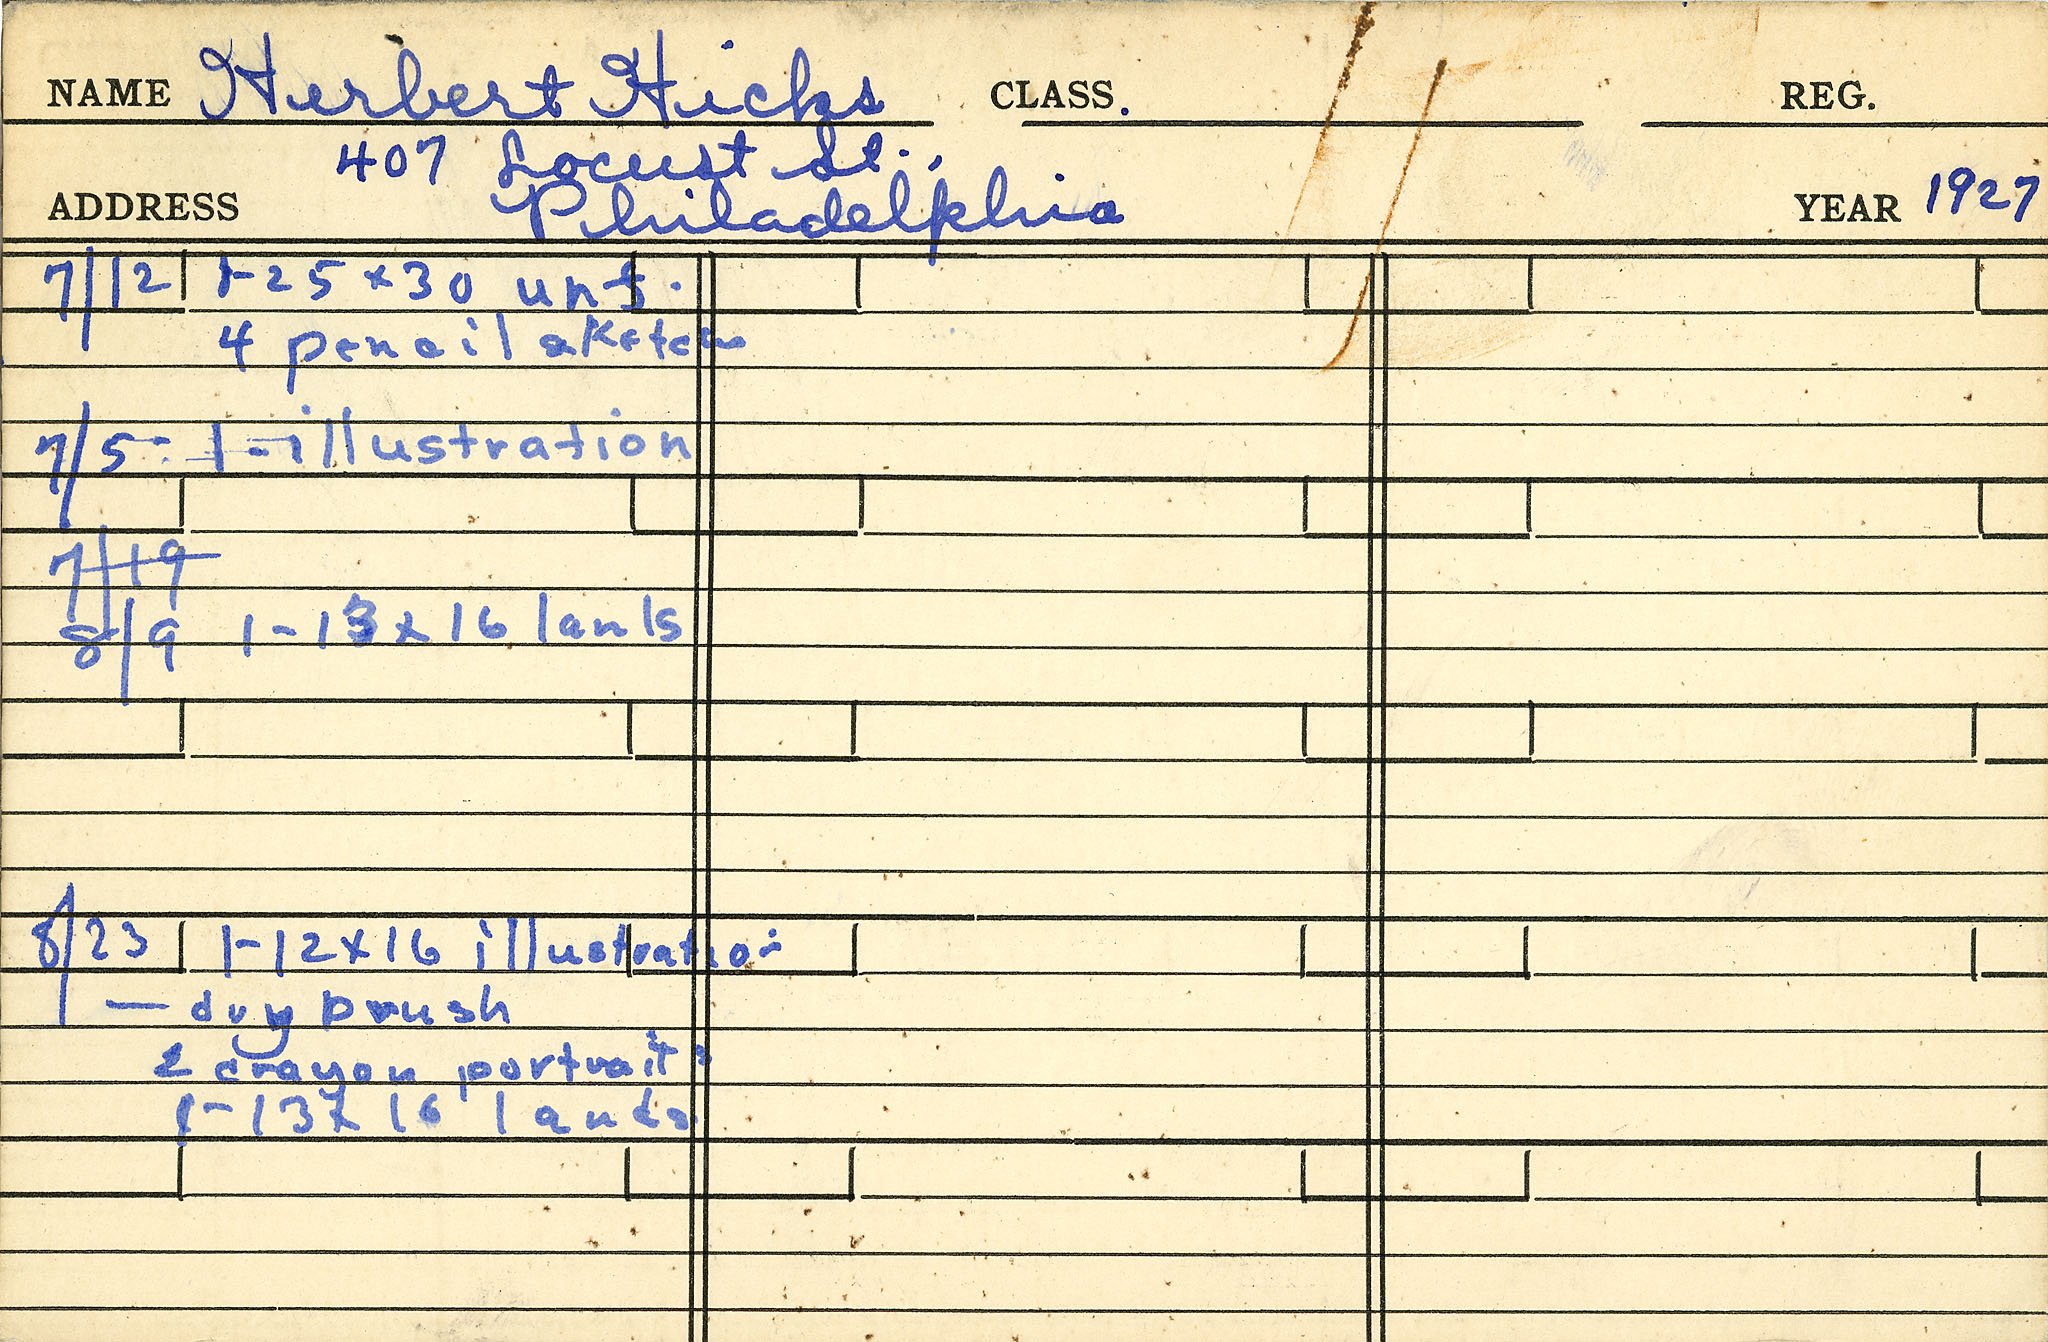 NAME Herbert Hicks CLASS. REG.
407 Locust St.,
ADDRESS Philadelphia YEAR 1927
7/12 1-25 x 30 unf.
4 pencil sketch
7/5 - 1-illustration
7/19
8/9 1-13 x 16 lands
8/23 1-12 x 16 illustration
— dry brush
2 crayon portraits
1-13 x 16 lands.